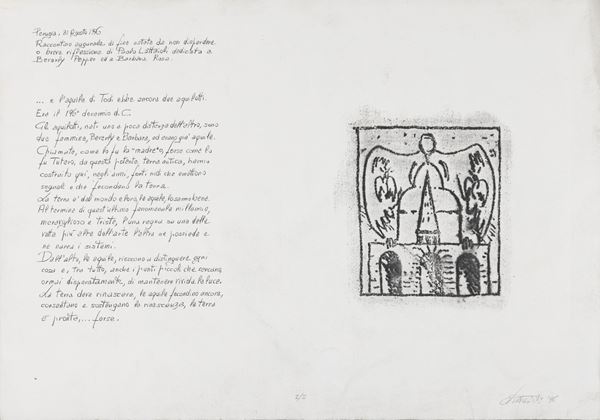 Perugia, 31 Agosto 1985
Raccontino augurale di fine estate da non disperdere
o breve riflessione di Paolo dedicata a
Beverly Pepper ed a Barbara Rose.
... e l'aquila di Todi ebbe ancora due aquilotti.
Era il 196° decennio d.C.
Gli aquilotti, nati uno a poca distanza dall'altro, sono
due femmine, Beverly e Barbara, ed erano già aquile.
Chiamato, come lo fu la "madre", forse come lo
fu Tutero, da questa potente, terra antica, hanno
costruito qui, negli anni, forti nidi che emettono
segnali e che fecondano la terra.
La terra e' del mondo e loro, le aquile, lo sanno bene.
Al termine di quest'ultimo fenomenale millennio,
meraviglioso e triste, l'una regna su una delle
vette più alte dell'arte l'altra ne possiede e
ne narra i sistemi.
Dall'alto, le aquile, riescono a distinguere ogni
cosa e, tra tutto, anche i punti piccoli che cercano,
ormai disperatamente, di mantenere vivida la luce.
La terra deve rinascere, le aquile fecondino ancora,
consentano e sostengano la rinascenza, la terra
è pronta,... forse.
2/2